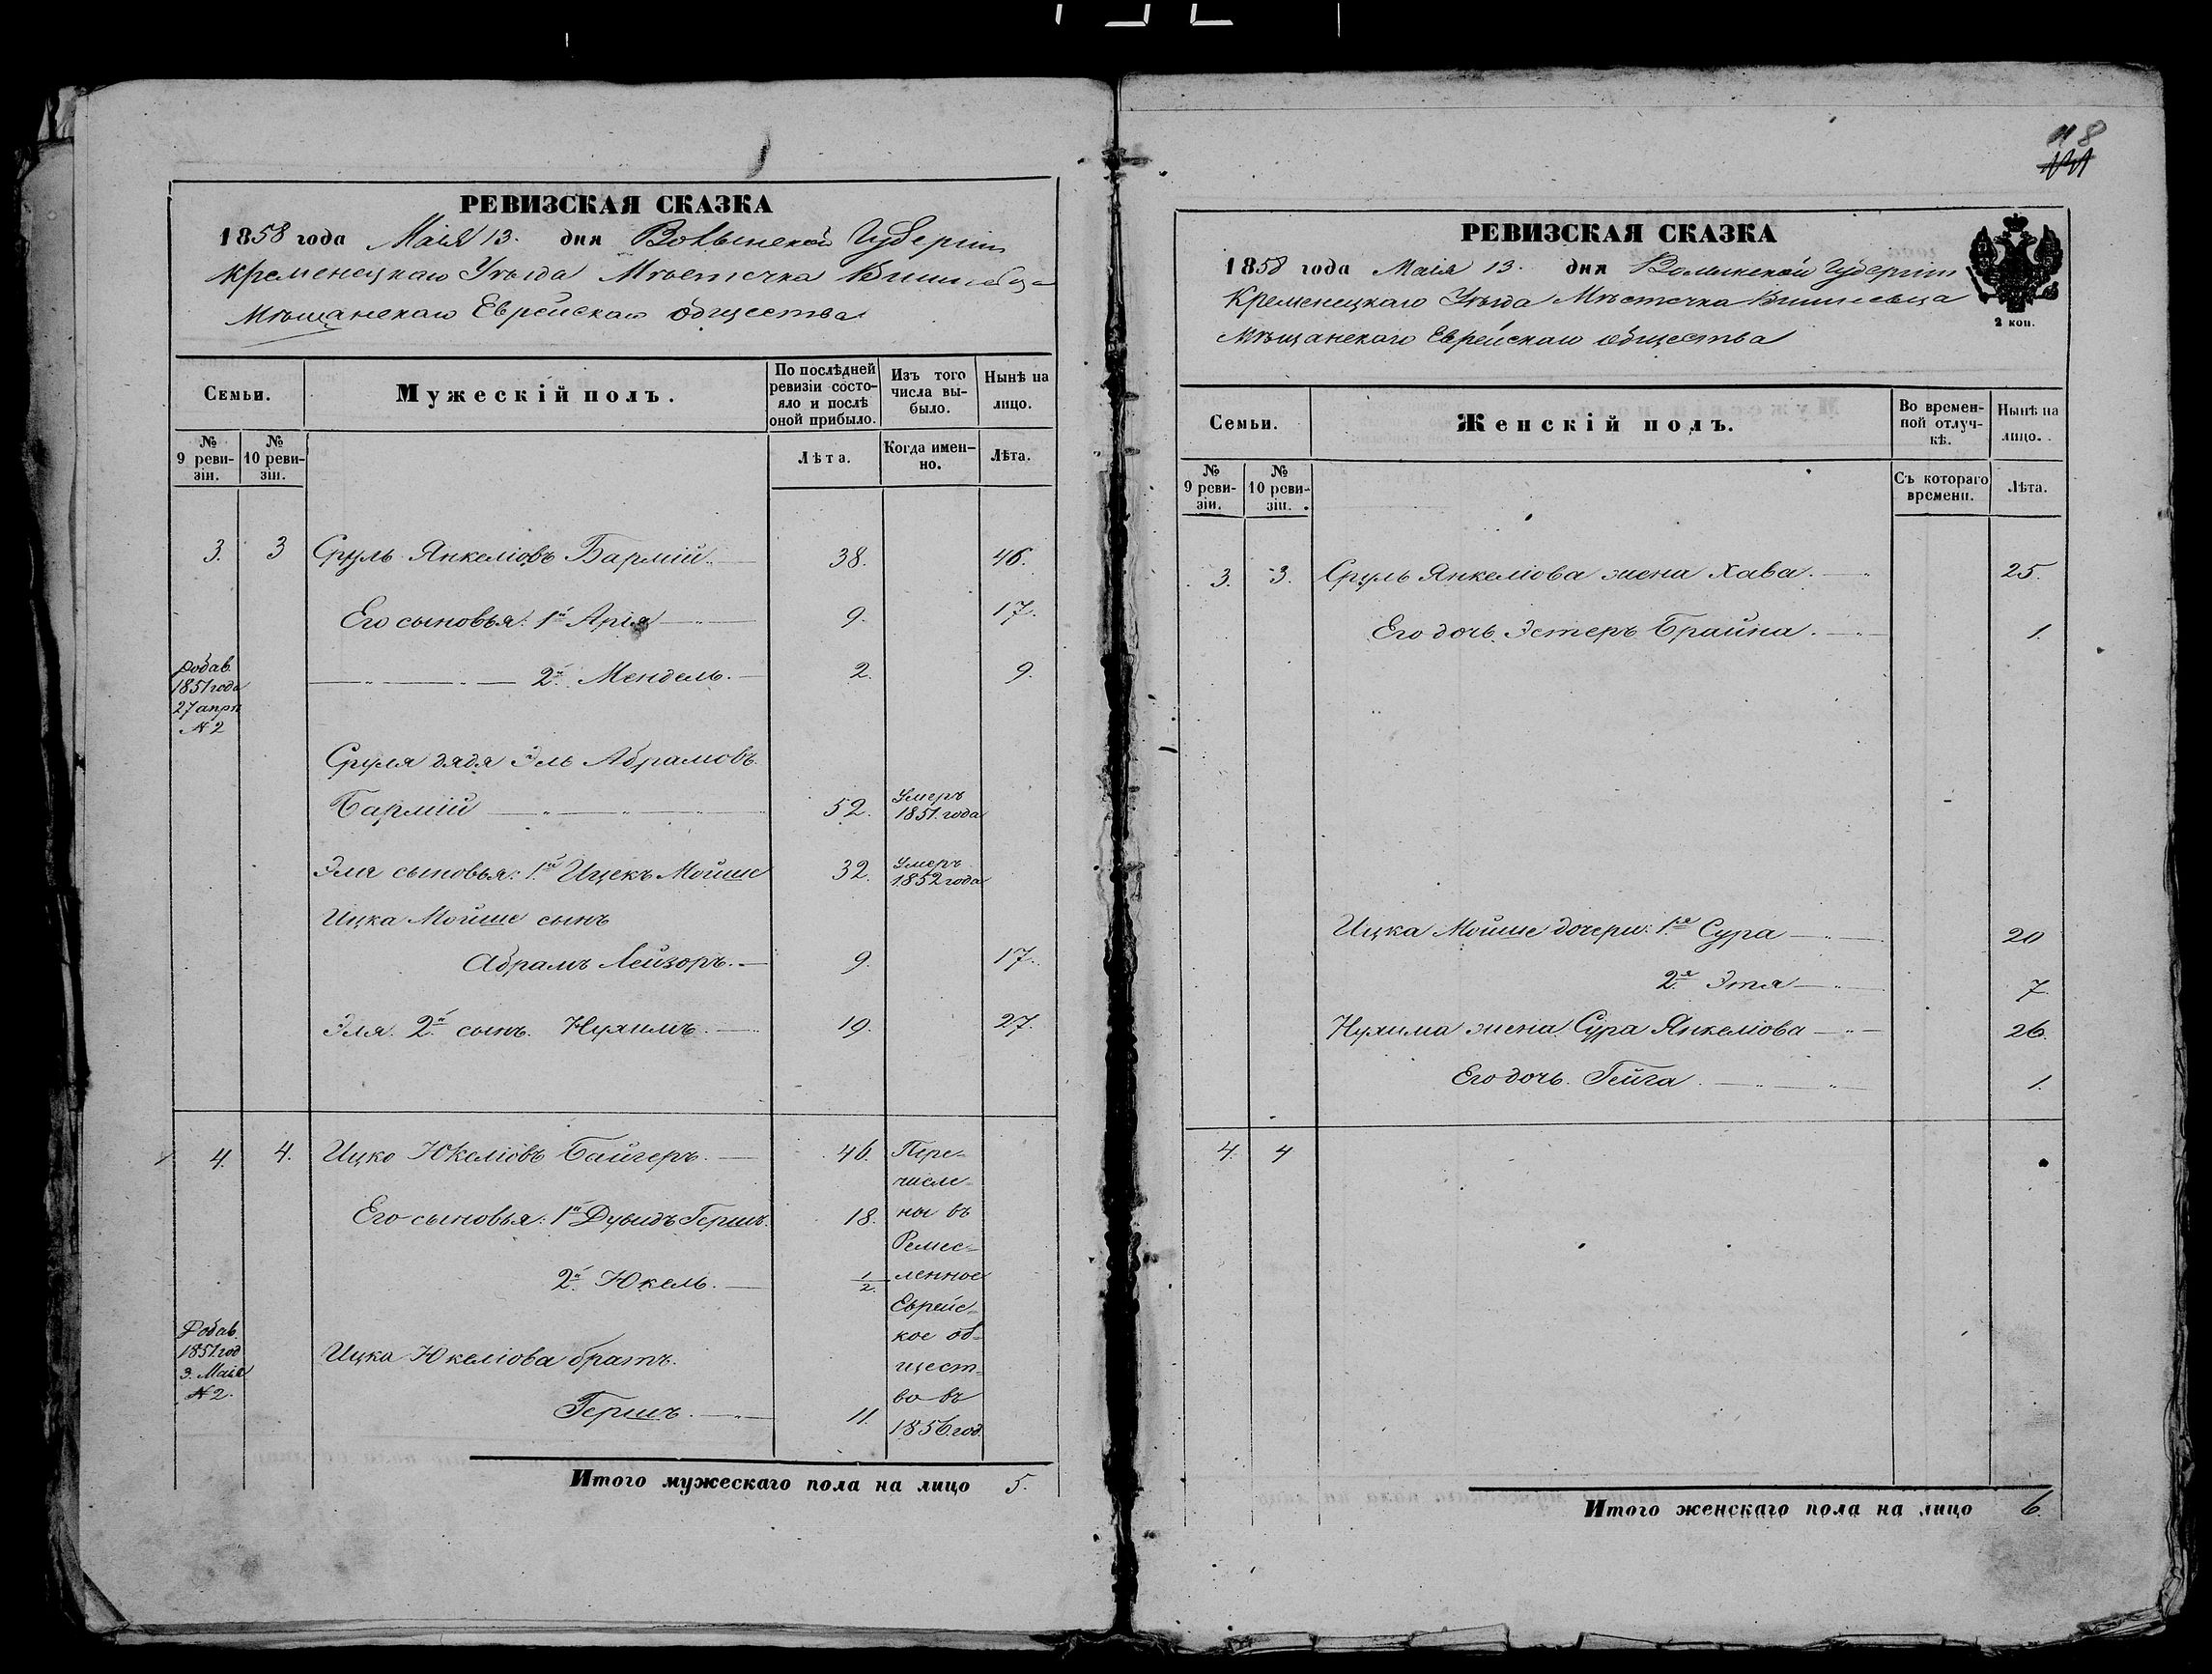 РЕВИЗСКАЯ СКАЗКА
1858 года Маія 13. дня Волынской Губерніи
Кременецкаго Уѣзда Мѣстечка Вишневца
Мѣщанскаго Еврейскаго общества
Семьи.
Мужескій полъ.
По послѣдней ревизіи состояло и послѣ оной прибыло.
Изъ того числа выбыло.
Нынѣ на лицо.
№ 9 ревизіи.
№ 10 ревизіи.
Лѣта.
Когда именно.
Лѣта.
3. 3 Сруль Янкеліовъ Бармій 38. 46.
Его сыновья: 1й Арія 9. 17.
Добав. 1851 года 27 апрѣ N 2
2й Мендель. 2. 9.
Сруля дядя Эль Абрамовъ
Бармій 52. Умеръ 1851. года
Эля сыновья: 1й Ицекъ Мойше 32. Умеръ 1852 года
Ицка Мойше сынъ
Абрамъ Лейзоръ. 9. 17.
Эля 2й сынъ. Нухимъ. 19. 27.
4. 4. Ицко Юкеліовъ Байгеръ. 46.
Его сыновья: 1й Дувидъ Гершъ. 18.
2й Юкель. 1/2.
Добав. 1851. год 3. Маія N 2.
Ицка Юкеліова братъ.
Гершъ. 11.
Пере-
числе-
ны въ
Ремес-
ленное
Еврейс-
кое об-
щест-
во въ
1856. год.
Итого мужескаго пола на лицо 5.
118
РЕВИЗСКАЯ СКАЗКА
1858 года Маія 13. дня Волынской Губерніи
Кременецкаго Уѣзда Мѣстечка Вишневца
Мѣщанскаго Еврейскаго общества
2 коп.
Семьи.
Женскій полъ.
Во временной отлучкѣ.
Нынѣ на лицо.
№ 9 ревизіи.
№ 10 ревизіи.
Съ котораго времени.
Лѣта.
3. 3. Сруль Янкеліова жена Хава. 25.
Его дочь Эстеръ Брайна. 1.
Ицка Мойше дочери: 1я Сура 20
2я Этя 7.
Нухима жена Сура Янкеліова 26.
Его дочь. Гейга. 1.
4. 4
Итого женскаго пола на лицо 6.